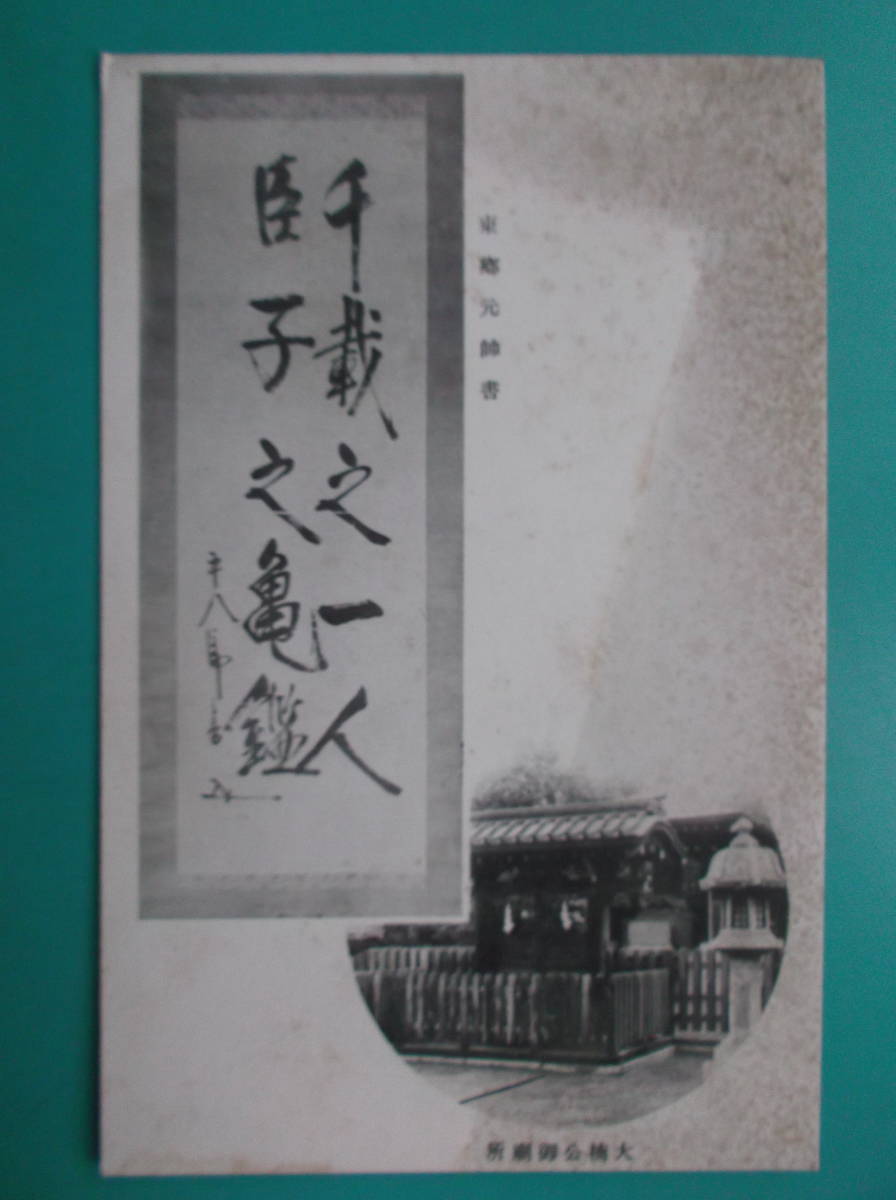 東郷元帥書
千載之一人
臣子之亀鑑
平八郎書
所廟御公楠大